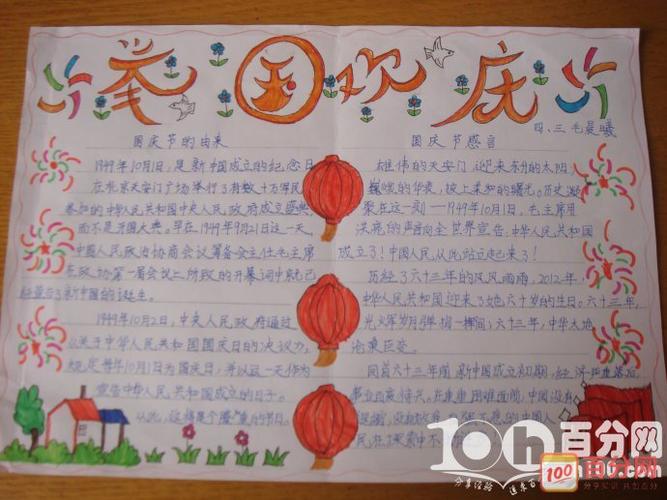 举国欢庆
四、三 毛晨曦
国庆节的由来
1949年10月1日,是新中国成立的纪念日
在北京天安门广场举行了有数十万军民
参加的中华人民共和国中央人民政府成立盛典,
而不是开国大典。早在1949年9月21日这一天,
中国人民政治协商会议筹备会主任毛主席
在政协第一届会议上所致的开幕词中就已
经宣告了新中国的诞生。
1949年10月2日,中央人民政府通过
《关于中华人民共和国国庆日的决议》,
规定每年10月1日为国庆日,并以这一天作为
宣告中华人民共和国成立的日子。
从此,这
国庆节感言
雄伟的天安门,迎来东升的太阳,
巍峨的华表,披上柔和的曙光。历史凝
聚在这一刻——1949年10月1日,毛主席用
洪亮的声音向全世界宣告:中华人民共和国
成立了!中国人民从此站立起来了!
历经了六十三年的风风雨雨,2012年,
中华人民共和国迎来了她六十岁的生日。六十三年,
光火军岁月弹指一挥间;六十三年,中华大地
沧桑巨变。
回首六十三年前,新中国成立初期,经济
事业百废待兴。 困难面前,中国没有
中国人
民在探索中不
10h百分网
分享经验
100
百分网